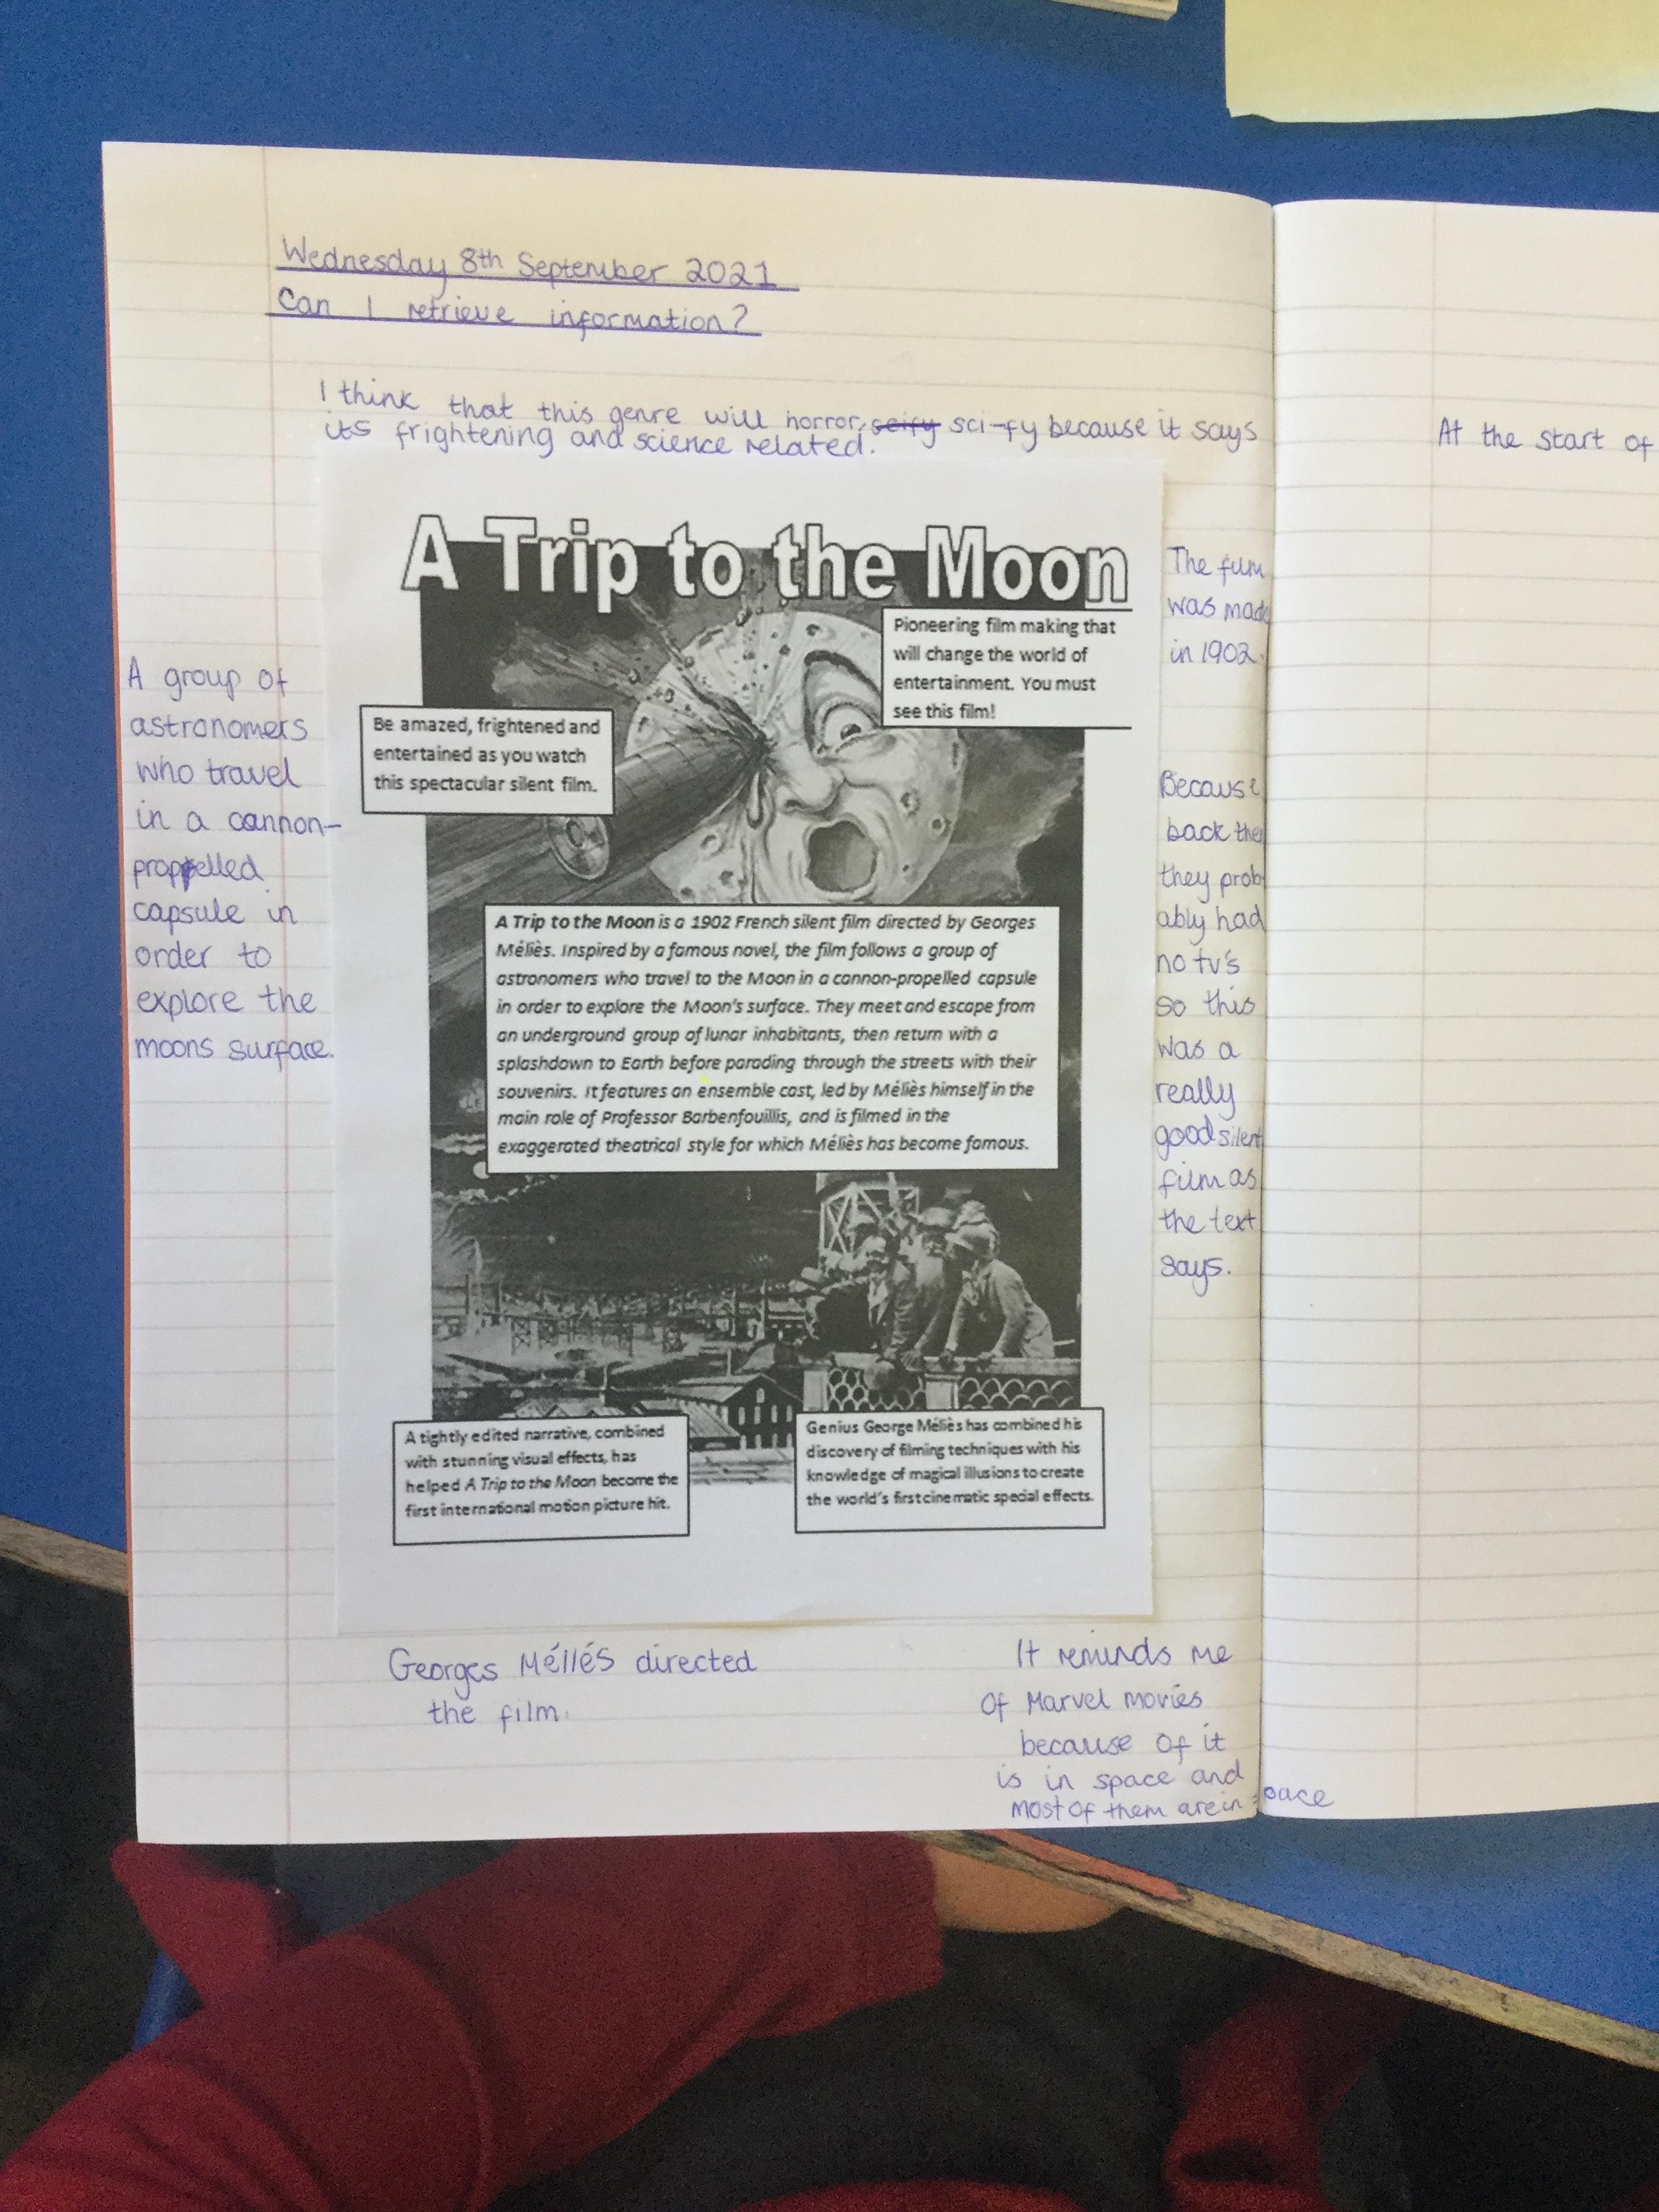 Wednesday 8th September 2021
Can I retrieve information?
I think that this genre will horror, scify sci-fy because it says
its frightening and science related.
At the start of
A Trip to the Moon
Pioneering film making that
will change the world of
entertainment. You must
see this film!
Be amazed, frightened and
entertained as you watch
this spectacular silent film.
The film
was made
in 1902.
A group of
astronomers
who travel
in a cannon-
propelled
capsule in
order to
explore the
moons surface.
A Trip to the Moon is a 1902 French silent film directed by Georges
Méliès. Inspired by a famous novel, the film follows a group of
astronomers who travel to the Moon in a cannon-propelled capsule
in order to explore the Moon's surface. They meet and escape from
an underground group of lunar inhabitants, then return with a
splashdown to Earth before parading through the streets with their
souvenirs. It features an ensemble cast, led by Méliès himself in the
main role of Professor Barbenfouillis, and is filmed in the
exaggerated theatrical style for which Méliès has become famous.
Because
back then
they prob
ably had
no tv's
so this
was a
really
good silent
film as
the text
says.
A tightly edited narrative, combined
with stunning visual effects, has
helped A Trip to the Moon become the
first international motion picture hit.
Genius George Méliès has combined his
discovery of filming techniques with his
knowledge of magical illusions to create
the world's first cinematic special effects.
Georges Méllés directed
the film.
It reminds me
Of Marvel movies
because of it
is in space and
most of them are in space